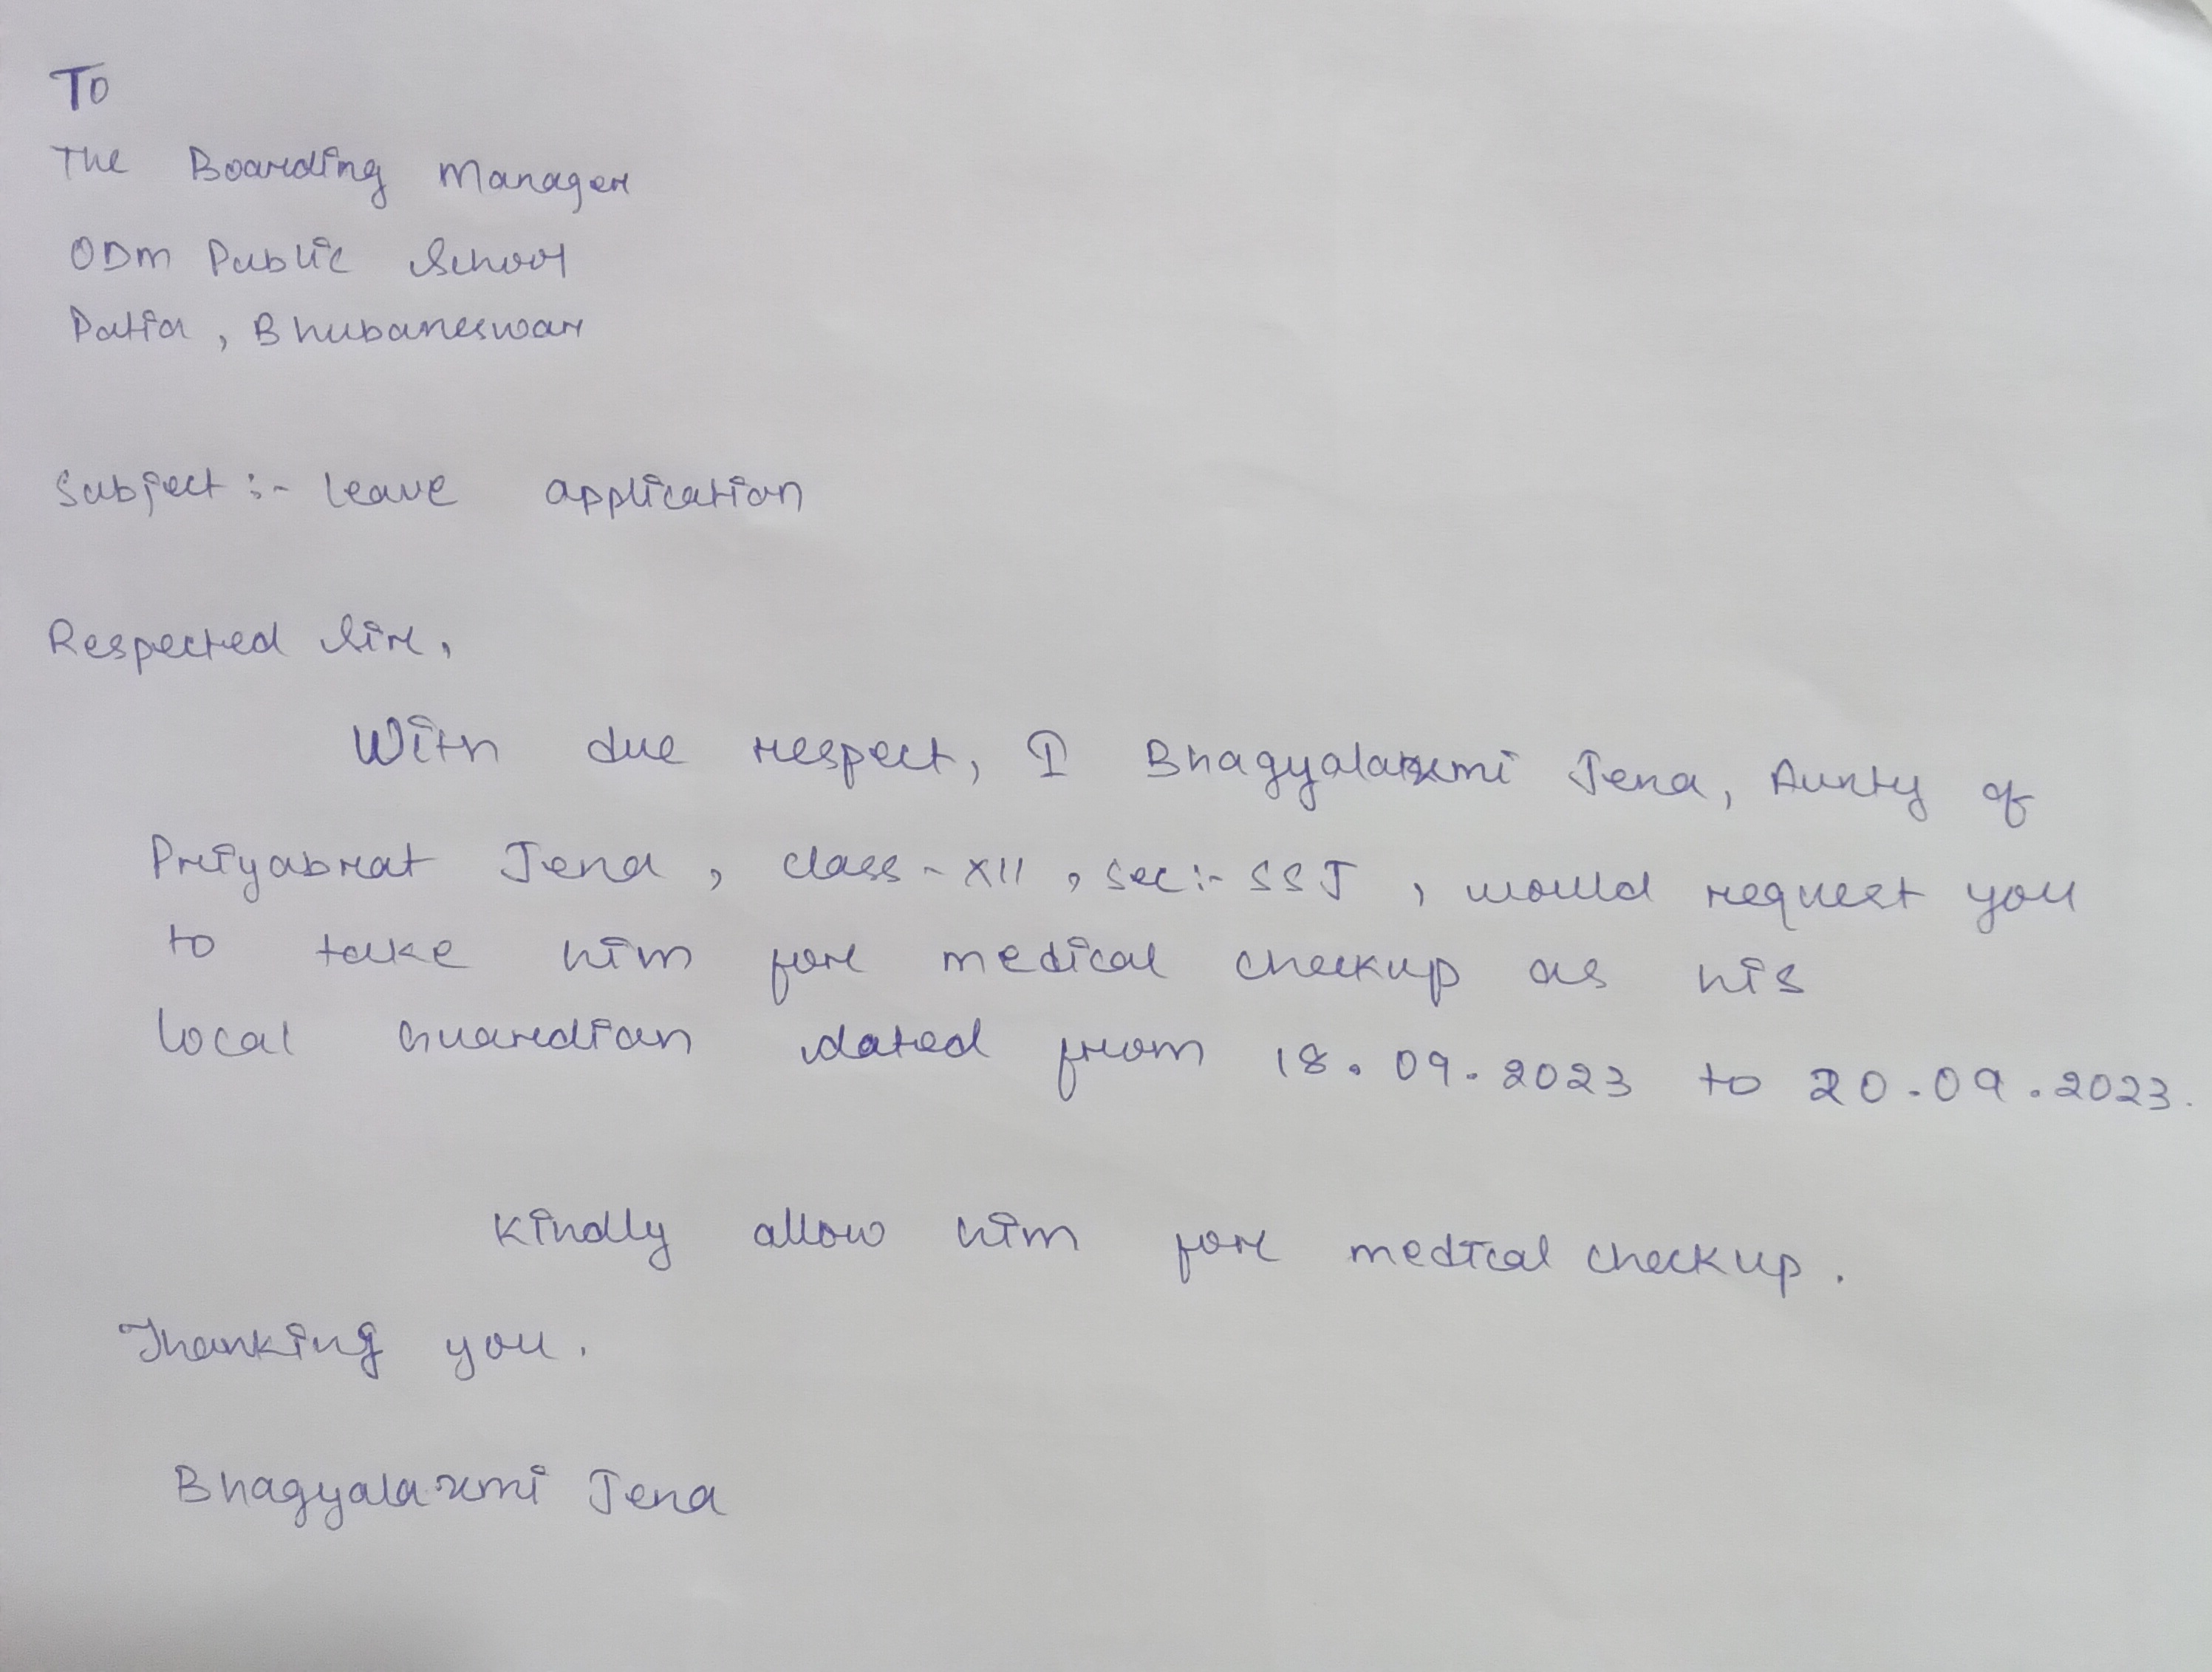 To
The Boarding Manager
ODM Public School
Patia, Bhubaneswar
Subject :- Leave application
Respected Sir,
With due respect, I Bhagyalaxmi Jena, Aunty of
Priyabrat Jena, class - XII, Sec :- SSJ, would request you
to take him for medical checkup as his
local Guardian dated from 18.09.2023 to 20.09.2023.
Kindly allow him for medical checkup.
Thanking you.
Bhagyalaxmi Jena